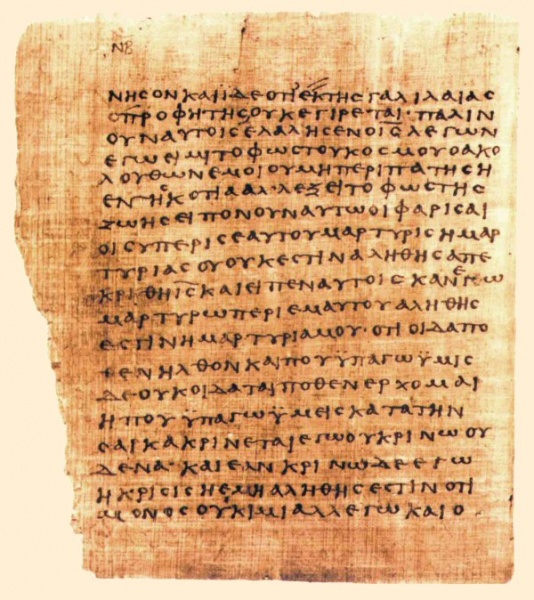 ΝΒ
ΝΗϹΟΝΚΑΙΪΔΕΟΤΙΕΚΤΗϹΓΑΛΙΛΑΙΑϹ
ΟΠΡΟΦΗΤΗϹΟΥΚΕΓΙΡΕΤΑΙ·ΠΑΛΙΝ
ΟΥΝΑΥΤΟΙϹΕΛΑΛΗϹΕΝΟΙ̅Ϲ̅ΛΕΓΩΝ
ΕΓΩΕΙΜΙΤΟΦΩϹΤΟΥΚΟϹΜΟΥΟΑΚΟ
ΛΟΥΘΩΝΕΜΟΙΟΥΜΗΠΕΡΙΠΑΤΗϹΗ
ΕΝΤΗϹΚΟΤΙΑΑΛ·ΛΕΞΕΙΤΟΦΩϹΤΗϹ
ΖΩΗϹΕΙΠΟΝΟΥΝΑΥΤΩΟΙΦΑΡΙϹΑΙ
ΟΙϹΥΠΕΡΙϹΕΑΥΤΟΥΜΑΡΤΥΡΙϹΗΜΑΡ
ΤΥΡΙΑϹΟΥΟΥΚΕϹΤΙΝΑΛΗΘΗϹΑΠΕ
ΚΡΙΘΗΙ̅Ϲ̅ΚΑΙΕΙΠΕΝΑΥΤΟΙϹΚΑΝΕΓΩ
ΜΑΡΤΥΡΩΠΕΡΙΕΜΑΥΤΟΥΑΛΗΘΗϹ
ΕϹΤΙΝΗΜΑΡΤΥΡΙΑΜΟΥΟΤΙΟΙΔΑΠΟ
ΘΕΝΗΛΘΟΝΚΑΙΠΟΥΫΠΑΓΩΫΜΙϹ
ΔΕΟΥΚΟΙΔΑΤΑΙΠΟΘΕΝΕΡΧΟΜΑΙ
ΗΠΟΥΫΠΑΓΩΫΜΕΙϹΚΑΤΑΤΗΝ
ϹΑΡΚΑΚΡΙΝΕΤΑΙΕΓΩΟΥΚΡΙΝΩΟΥ
ΔΕΝΑ·ΚΑΙΕΑΝΚΡΙΝΩΔΕΕΓΩ
ΗΚΡΙϹΙϹΗΕΜΗΑΛΗΘΗϹΕϹΤΙΝΟΤΙ
ΜΟΝΟϹΟΥΚΙΜΙΑΛΛΕΓΩΚΑΙΟ